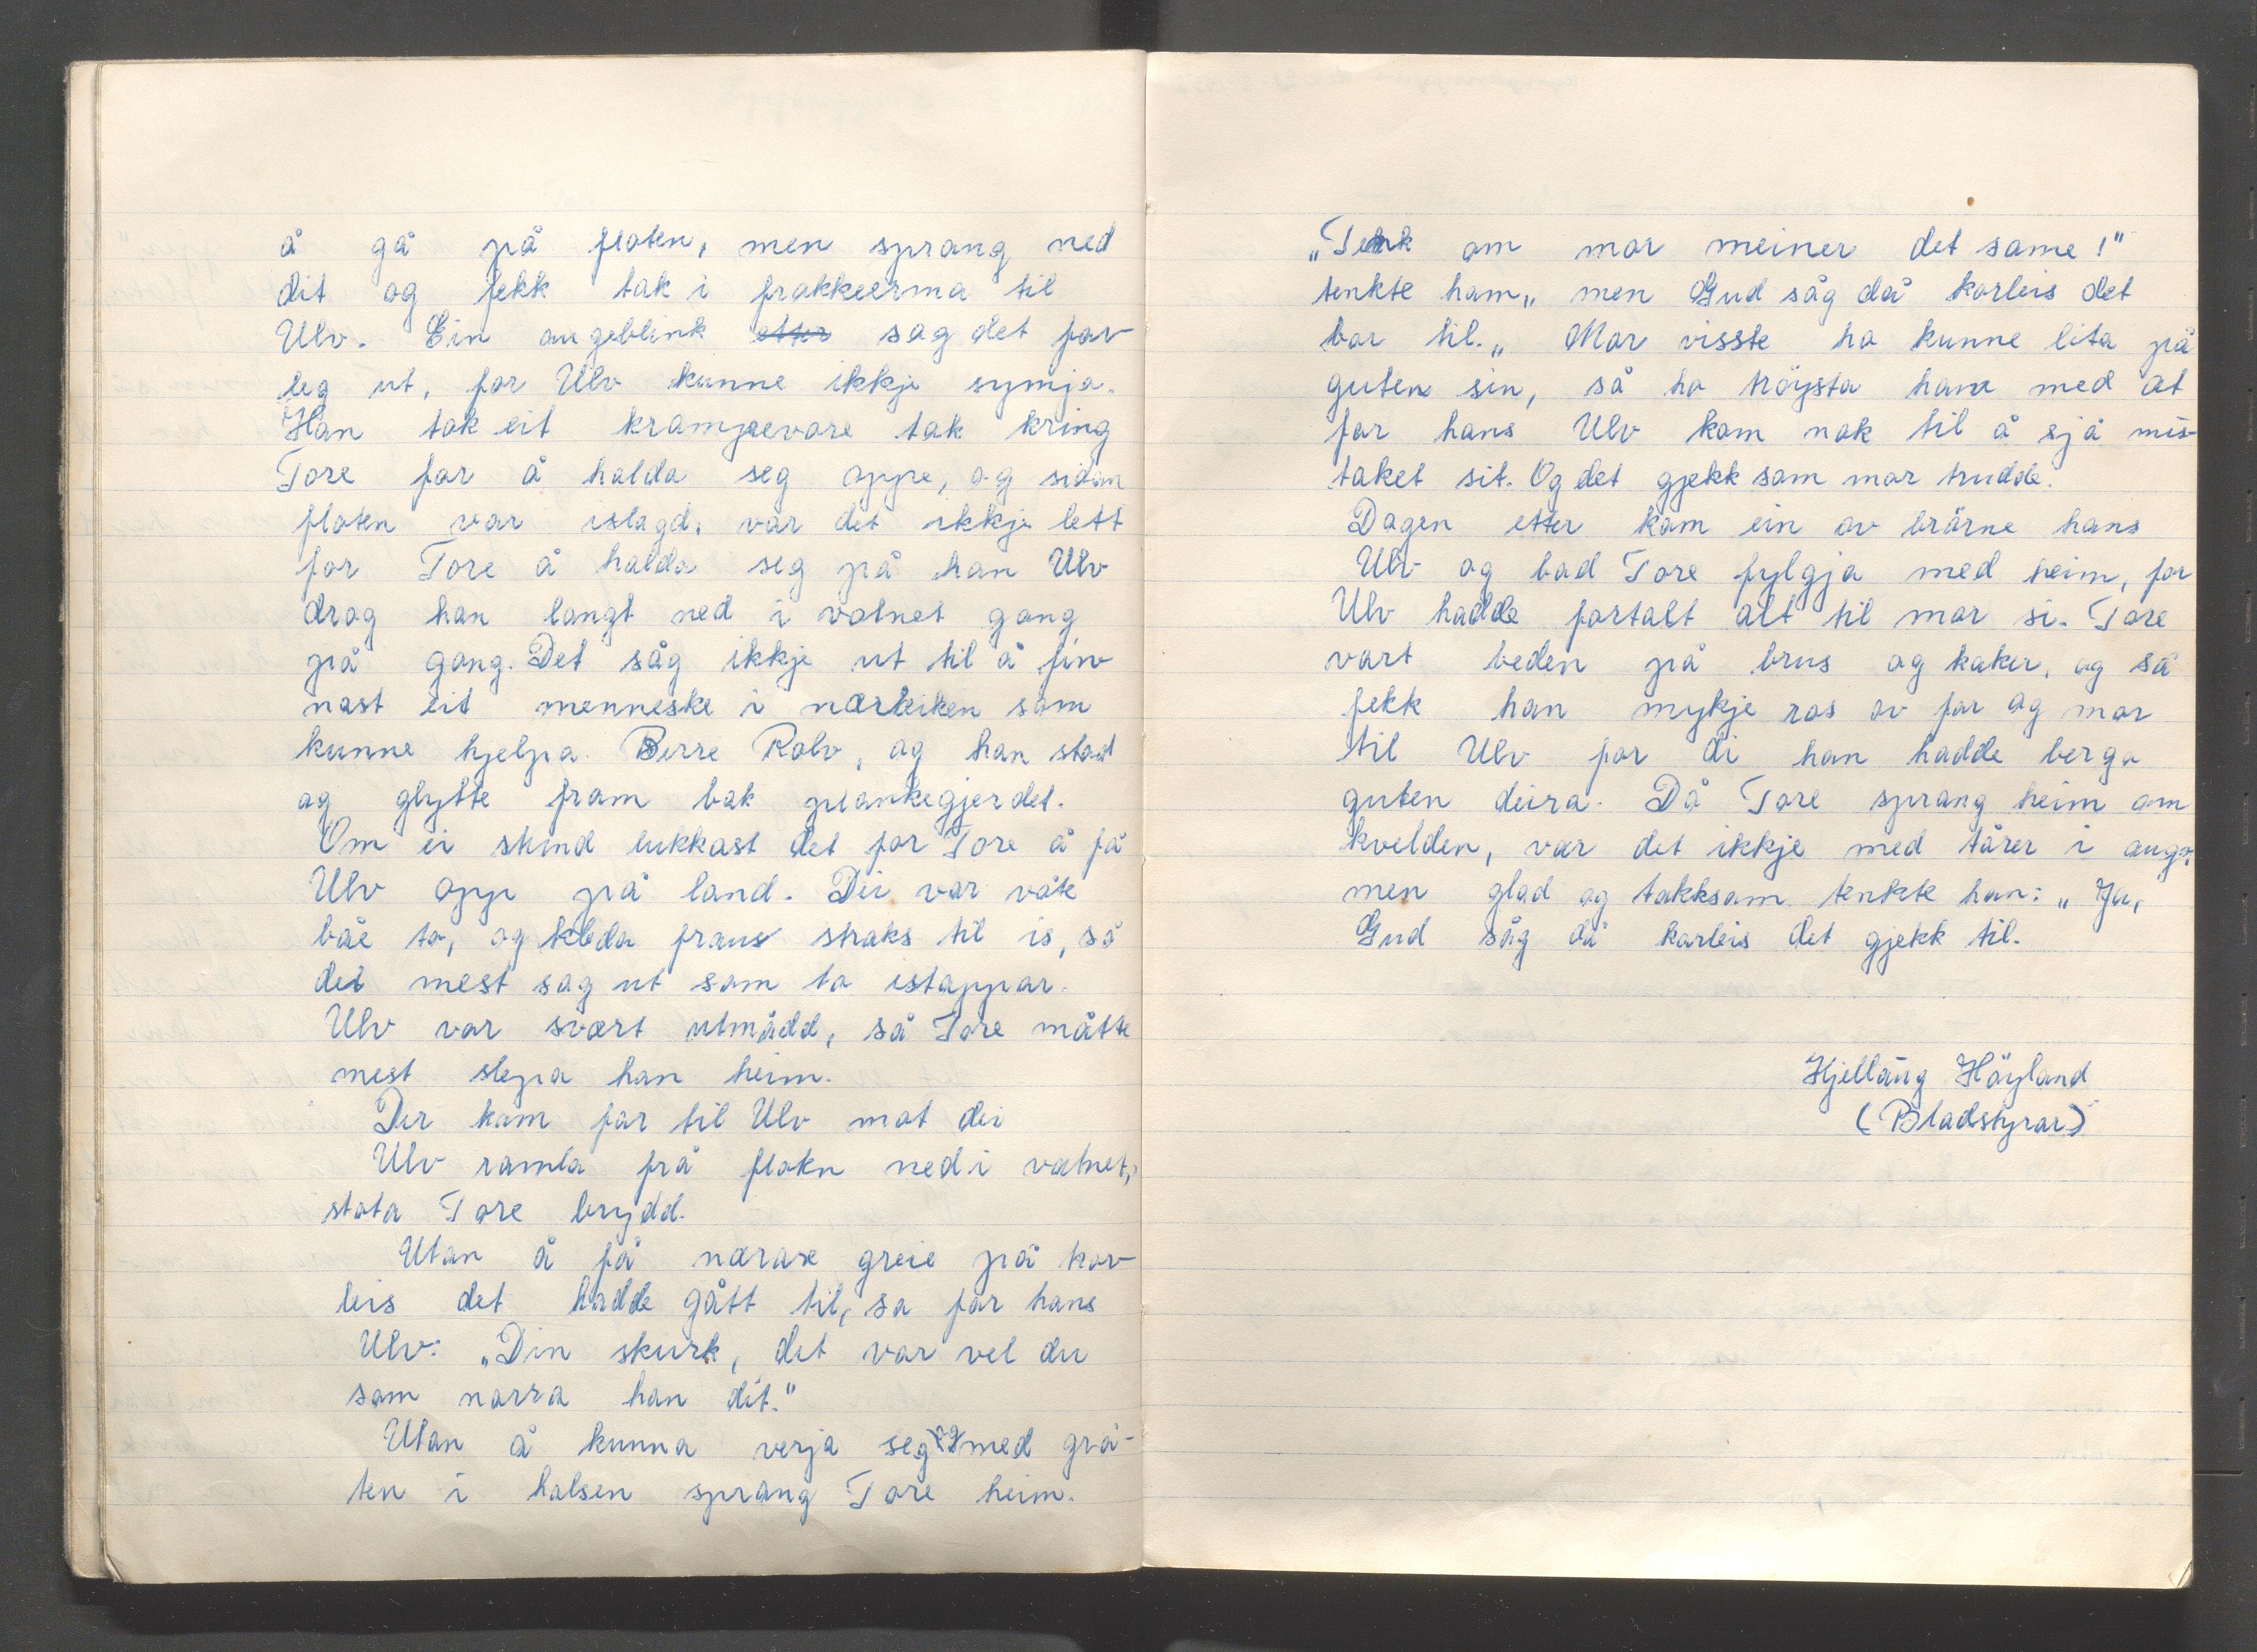 å gå på flaten, men sprang ned
dit og fekk tak i frakkeerma til
Ulv. Ein augeblink etter sag det far-
leg ut, for Ulv kunne ikkje symja.
Han tok eit krampeevore tak kring
Tore for å halda seg oppe, og sidan
flaten var islagd, var det ikkje lett
for Tore å halda seg på han Ulv
drog han langt ned i vatnet gong
på gong. Det såg ikkje ut til å fin-
nast eit menneske i nærleiken som
kunne hjelpa. Berre Rolv, og han stod
og glytte fram bak plankegjerdet.
Om ei stund lukkast det for Tore å få
Ulv opp på land. Dei var våte
båe to, og kleda fraus straks til is, så
det mest sag ut som to istappar.
Ulv var svært utmådd, så Tore måtte
mest slepa han heim.
Der kom far til Ulv mot dei
Ulv ramla frå flaten ned i vatnet,
stota Tore brydd.
Utan å få nærare greie på kor-
leis det hadde gått til, sa far hans
Ulv: „Din skurk, det var vel du
som narra han dit."
Utan å kunna verja seg med grå-
ten i halsen sprang Tore heim.
„Tenk om mor meiner det same!"
tenkte ham„ men Gud såg då korleis det
bar til.„ Mor visste ho kunne lita på
guten sin, så ho tröysta ham med at
far hans Ulv kom nok til å sjå mis-
taket sit. Og det gjekk som mor trudde.
Dagen etter kom ein av brörne hans
Ulv og bad Tore fylgja med heim, for
Ulv hadde fortalt alt til mor si. Tore
vart beden på brus og kaker, og så
fekk han mykje ros av far og mor
til Ulv for di han hadde berga
guten deira. Då Tore sprang heim om
kvelden, var det ikkje med tårer i augo,
men glad og takksam tenkte han: „Ja,
Gud såg då korleis det gjekk til.
Kjellaug Höyland
(Bladstyrar)